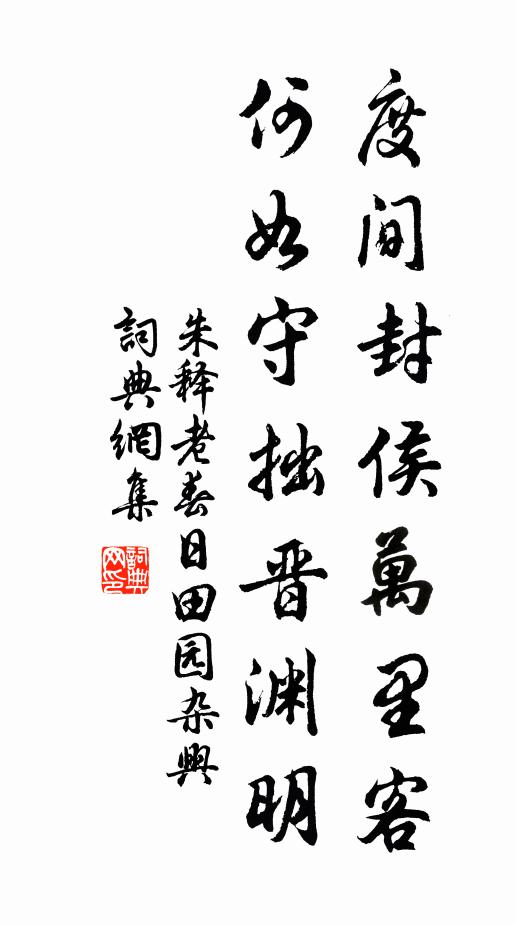 度间封侯萬里客
何如守拙晋渊明
朱释老春日田园杂興
詞典網集
詞典网印